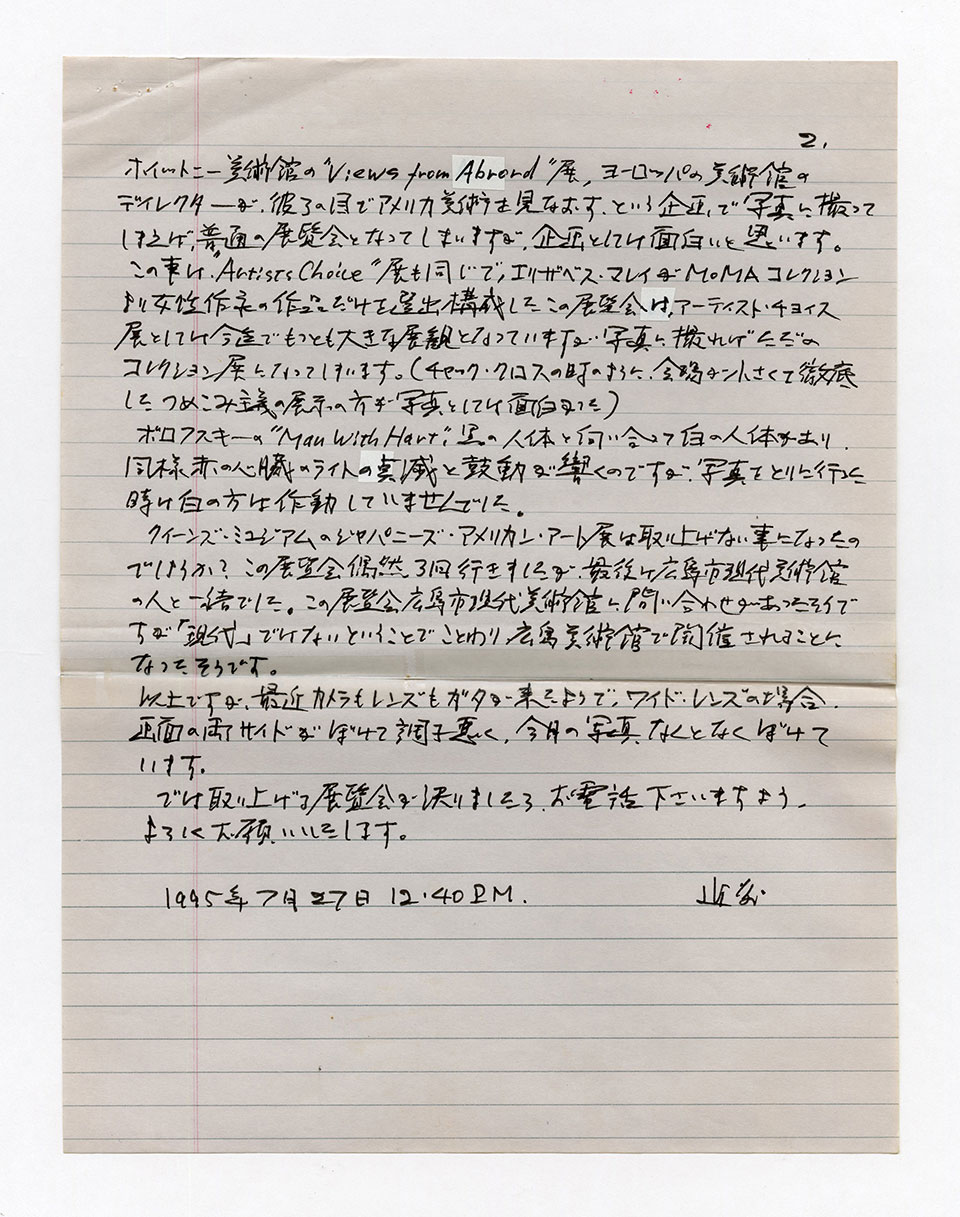 2.
ホイットニー美術館の"Views from Abrord"展, ヨーロッパの美術館の
ディレクターが、彼らの目でアメリカ美術を見なおす、という企画で写真に撮って
しまえば、普通の展覧会となってしまいますが、企画としては面白いと思います。
この事は、Artists Choice"展も同じで、エリザベス・マレイがMoMAコレクション
より女性作家の作品だけを選出構成したこの展覧会は、アーティスト・チョイス
展としては今迄でもっとも大きな展観となっていますが、写真に撮ればただの
コレクション展になってしまいます。(チャック・クロスの時のように、会場が小さくて徹底
したつめこみ主義の展示の方が写真としては面白かった)
ボロフスキーの"Man With Hart", 黒の人体と向い合って白の人体があり、
同様赤の心臓のライトの点滅と鼓動が響くのですが、写真をとりに行った
時は白の方は作動していませんでした。
クイーンズ・ミュジアムのジャパニーズ・アメリカン・アート展は取り上げない事になったの
でしょうか? この展覧会偶然3回行きましたが、最後は広島市現代美術館
の人と一緒でした。この展覧会広島市現代美術館に問い合わせがあったそうで
すが「現代」ではないということでことわり、広島美術館で開催されることに
なったそうです。
以上ですが、最近カメラもレンズもガタが来たようで、ワイド・レンズの場合、
画面の両サイドがぼけて調子悪く、今月の写真、なんとなくぼけて
います。
では取り上げる展覧会が決りましたら、お電話下さいますよう、
よろしくお願いいたします。
1995年7月27日 12.40P.M.